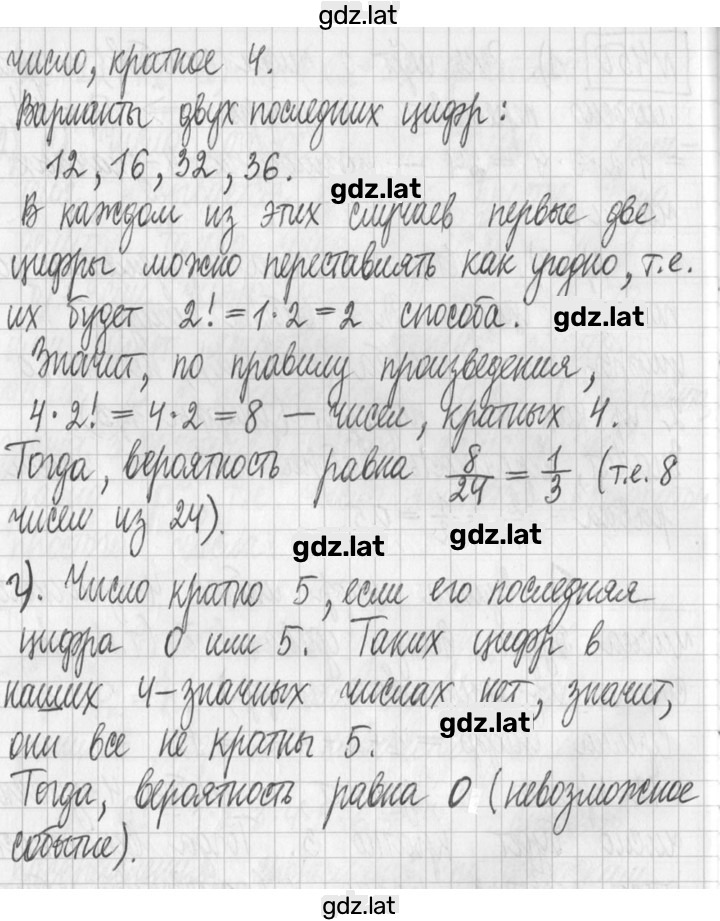 gdz.lat
число, кратное 4.
Варианты двух последних цифр:
12, 16, 32, 36.
gdz.lat
В каждом из этих случаев первые две
цифры можно переставлять как угодно, т.е.
их будет 2! = 1·2 = 2 способа.
gdz.lat
Значит, по правилу произведения,
4·2! = 4·2 = 8 — чисел, кратных 4.
Тогда, вероятность равна 8/24 = 1/3 (т.е. 8
чисел из 24).
gdz.lat
gdz.lat
г). Число кратно 5, если его последняя
цифра 0 или 5. Таких цифр в
наших 4-значных числах нет, значит,
gdz.lat
они все не кратны 5.
Тогда, вероятность равна 0 (невозможное
событие).
gdz.lat